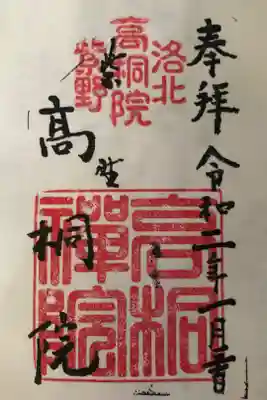 奉拝 令和二年一月吉日
洛北
高桐院
紫野
紫野
高桐院
高桐
禪院